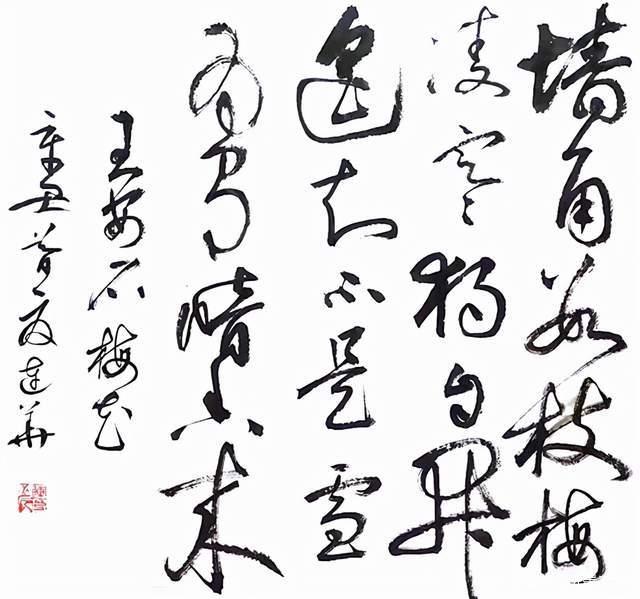 墙角数枝梅
凌寒独自开
遥知不是雪
为有暗香来
王安石梅花
辛丑首夏